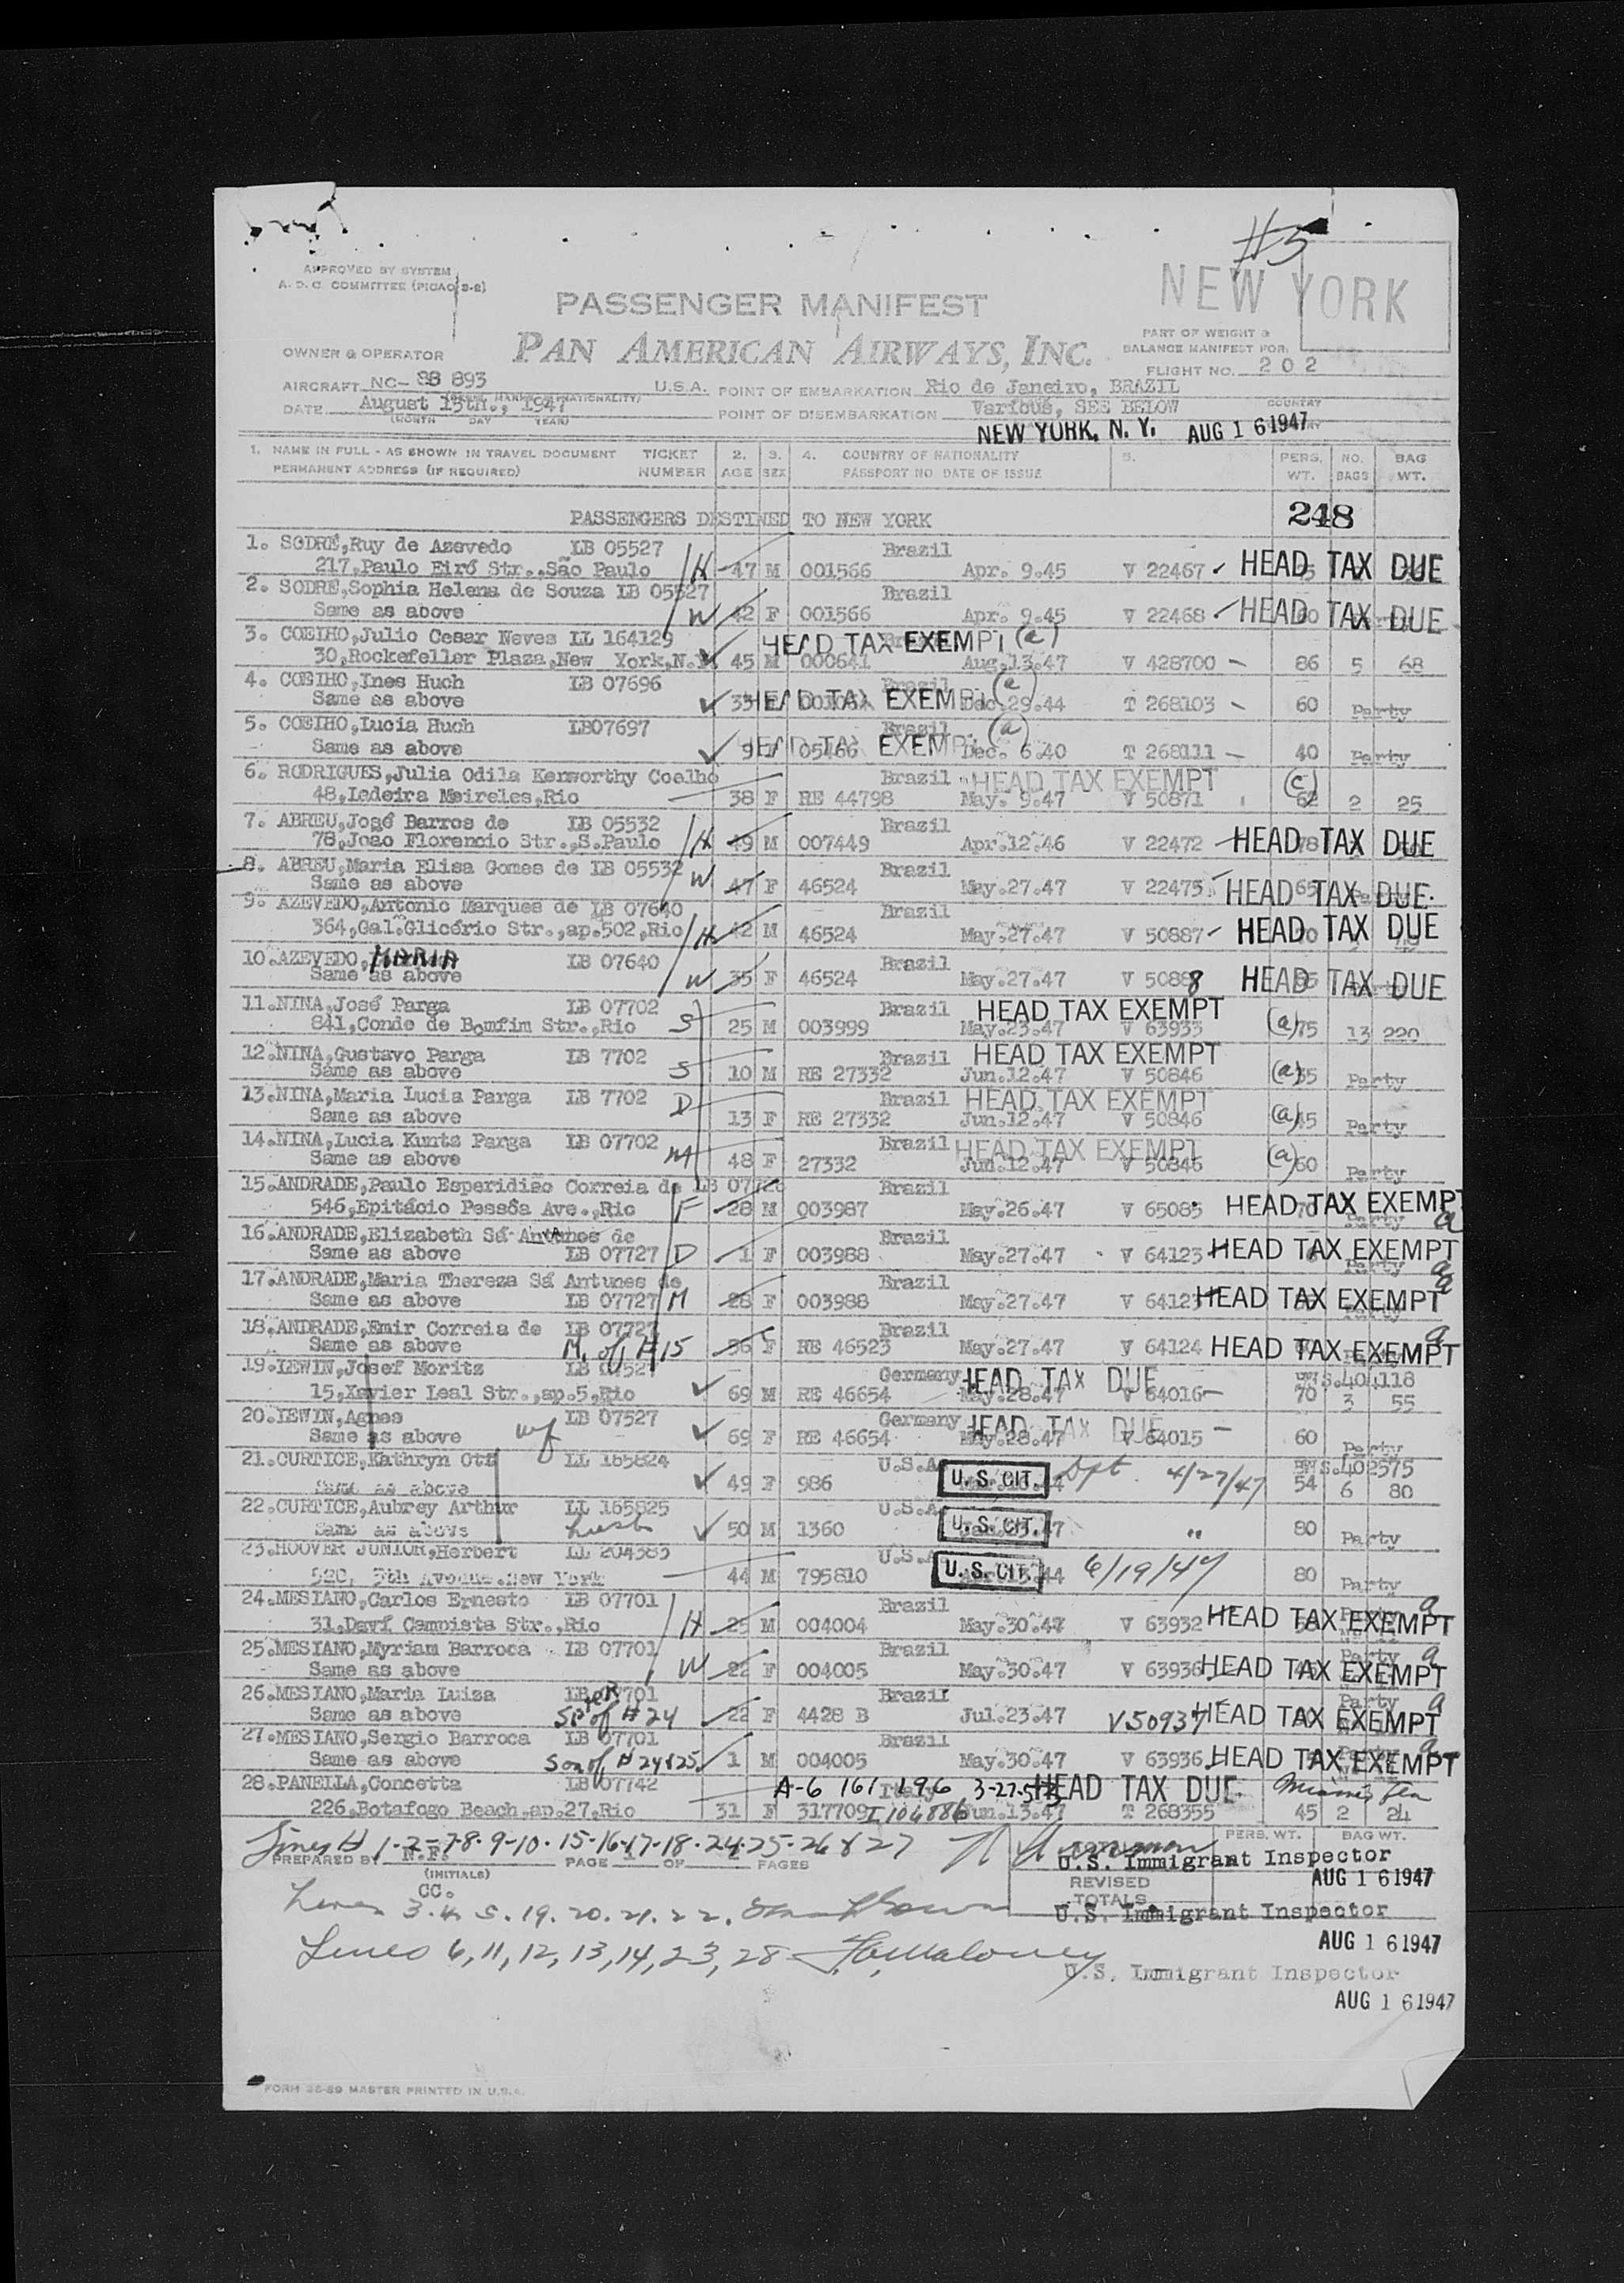 #5
APPROVED BY SYSTEM
A. D. C. COMMITTEE (PICAO 3-2)
NEW YORK
PASSENGER MANIFEST
PAN AMERICAN AIRWAYS, INC.
PART OF WEIGHT &
BALANCE MANIFEST FOR:
FLIGHT NO. 202
OWNER & OPERATOR
AIRCRAFT NC- 88 893 U.S.A. POINT OF EMBARKATION Rio de Janeiro, BRAZIL
DATE August 15th., 1947 POINT OF DISEMBARKATION Various, SEE BELOW COUNTRY
(MONTH DAY YEAR)
NEW YORK, N. Y. AUG 16 1947
1. NAME IN FULL - AS SHOWN IN TRAVEL DOCUMENT TICKET 2. 3. 4. COUNTRY OF NATIONALITY 5. PERS. NO. BAG
PERMANENT ADDRESS (IF REQUIRED) NUMBER AGE SEX PASSPORT NO DATE OF ISSUE WT. BAGS WT.
PASSENGERS DESTINED TO NEW YORK 248
1. SODRÉ,Ruy de Azevedo LB 05527 Brazil
217,Paulo Eiró Str.,São Paulo H 47 M 001566 Apr. 9.45 V 22467 HEAD TAX DUE
2. SODRÉ,Sophia Helena de Souza LB 05527 Brazil
Same as above W 42 F 001566 Apr. 9.45 V 22468 HEAD TAX DUE
3. COELHO,Julio Cesar Neves LL 164129 HEAD TAX EXEMPT (a)
30,Rockefeller Plaza,New York,N.Y. 45 M 000641 Aug.13.47 V 428700 86 5 68
4. COELHO,Ines Huch LB 07696 Brazil (a)
Same as above 33 HEAD TAX EXEMPT Dec.29.44 T 268103 60 Party
5. COELHO,Lucia Huch LB07697 Brazil (a)
Same as above 9 F 05466 HEAD TAX EXEMPT Dec. 6.40 T 268111 40 Party
6. RODRIGUES,Julia Odila Kenworthy Coelho Brazil HEAD TAX EXEMPT (c)
48,Ladeira Meireles,Rio 38 F RE 44798 May. 9.47 V 50871 62 2 25
7. ABREU,José Barros de LB 05532 Brazil
78,Joao Florencio Str.,S.Paulo H 49 M 007449 Apr.12.46 V 22472 HEAD TAX DUE
8. ABREU,Maria Elisa Gomes de LB 05532 Brazil
Same as above W 47 F 46524 May.27.47 V 22475 HEAD TAX DUE
9. AZEVEDO,Antonio Marques de LB 07640 Brazil
364,Gal.Glicério Str.,ap.502,Rio H 42 M 46524 May.27.47 V 50887 HEAD TAX DUE
10.AZEVEDO, MARIA LB 07640 Brazil
Same as above W 35 F 46524 May.27.47 V 50888 HEAD TAX DUE
11.NINA,José Parga LB 07702 Brazil HEAD TAX EXEMPT
841,Conde de Bomfim Str.,Rio S 25 M 003999 May.23.47 V 63933 (a) 75 13 220
12.NINA,Gustavo Parga LB 7702 Brazil HEAD TAX EXEMPT
Same as above S 10 M RE 27332 Jun.12.47 V 50846 (a) 35 Party
13.NINA,Maria Lucia Parga LB 7702 Brazil HEAD TAX EXEMPT
Same as above D 13 F RE 27332 Jun.12.47 V 50846 (a) 45 Party
14.NINA,Lucia Kuntz Parga LB 07702 Brazil HEAD TAX EXEMPT
Same as above M 48 F 27332 Jun.12.47 V 50846 (a) 60 Party
15.ANDRADE,Paulo Esperidião Correia de LB Brazil
546,Epitácio Pessôa Ave.,Rio F 28 M 003987 May.26.47 V 65085 HEAD TAX EXEMPT a
16.ANDRADE,Elizabeth Sá Antunes de Brazil
Same as above LB 07727 D 1 F 003988 May.27.47 V 64123 HEAD TAX EXEMPT a
17.ANDRADE,Maria Thereza Sá Antunes de Brazil
Same as above LB 07727 M 28 F 003988 May.27.47 V 64123 HEAD TAX EXEMPT a
18.ANDRADE,Emir Correia de LB 07727 Brazil
Same as above M. of #15 56 F RE 46523 May.27.47 V 64124 HEAD TAX EXEMPT a
19.LEWIN,Josef Moritz LB 07527 Germany HEAD TAX DUE 404118
15,Xavier Leal Str.,ap.5,Rio 69 M RE 46654 May.28.47 V 64016 70 3 55
20.LEWIN,Agnes LB 07527 Germany HEAD TAX DUE
Same as above wf 69 F RE 46654 May.28.47 V 64015 60 Party
21.CURTICE,Kathryn Ott LL 165824 U.S.A. 402575
Same as above 49 F 986 U. S. CIT. Dpt 4/27/47 54 6 80
22.CURTICE,Aubrey Arthur LL 165825 U.S.A.
Same as above husb 50 M 1360 U. S. CIT. " 80 Party
23.HOOVER JUNIOR,Herbert LL 204383 U.S.A.
520, 5th Avenue.New York 44 M 795810 U. S. CIT. 6/19/47 80 Party
24.MESIANO,Carlos Ernesto LB 07701 Brazil Party a
31,Daví Campista Str.,Rio H 25 M 004004 May.30.47 V 63932 HEAD TAX EXEMPT
25.MESIANO,Myriam Barroca LB 07701 Brazil Party a
Same as above W 22 F 004005 May.30.47 V 63936 HEAD TAX EXEMPT
26.MESIANO,Maria Luiza LB 07701 Brazil Party a
Same as above Sister of #24 22 F 4428 B Jul.23.47 V50937 HEAD TAX EXEMPT
27.MESIANO,Sergio Barroca LB 07701 Brazil a
Same as above Son of #24&25 1 M 004005 May.30.47 V 63936 HEAD TAX EXEMPT
28.PANELLA,Concetta LB 07742 Italy A-6 161 196 3-27-53 HEAD TAX DUE Miami Fla
226,Botafogo Beach,ap.27,Rio 31 F 317709 I106886 Jun.13.47 T 268355 45 2 24
Lines # 1-2-7-8-9-10-15-16-17-18-24-25-26 & 27
PREPARED BY N.F. PAGE 1 OF PAGES PERS. WT. BAG WT.
(INITIALS)
U.S. Immigrant Inspector
CC. REVISED TOTALS AUG 16 1947
Lines 3.4.5.19.20.21.22.
U.S. Immigrant Inspector
AUG 16 1947
Lines 6,11,12,13,14,23,28 Maloney
U.S. Immigrant Inspector
AUG 16 1947
FORM 36-89 MASTER PRINTED IN U.S.A.